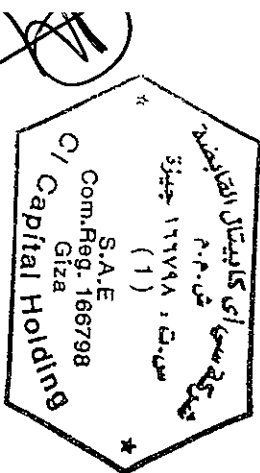 شركة سي أي كابيتال القابضة
ش.م.م
س.ت : ١٦٦٧٩٨ جيزة
(1)
S.A.E
Com.Reg. 166798
Giza
CI Capital Holding